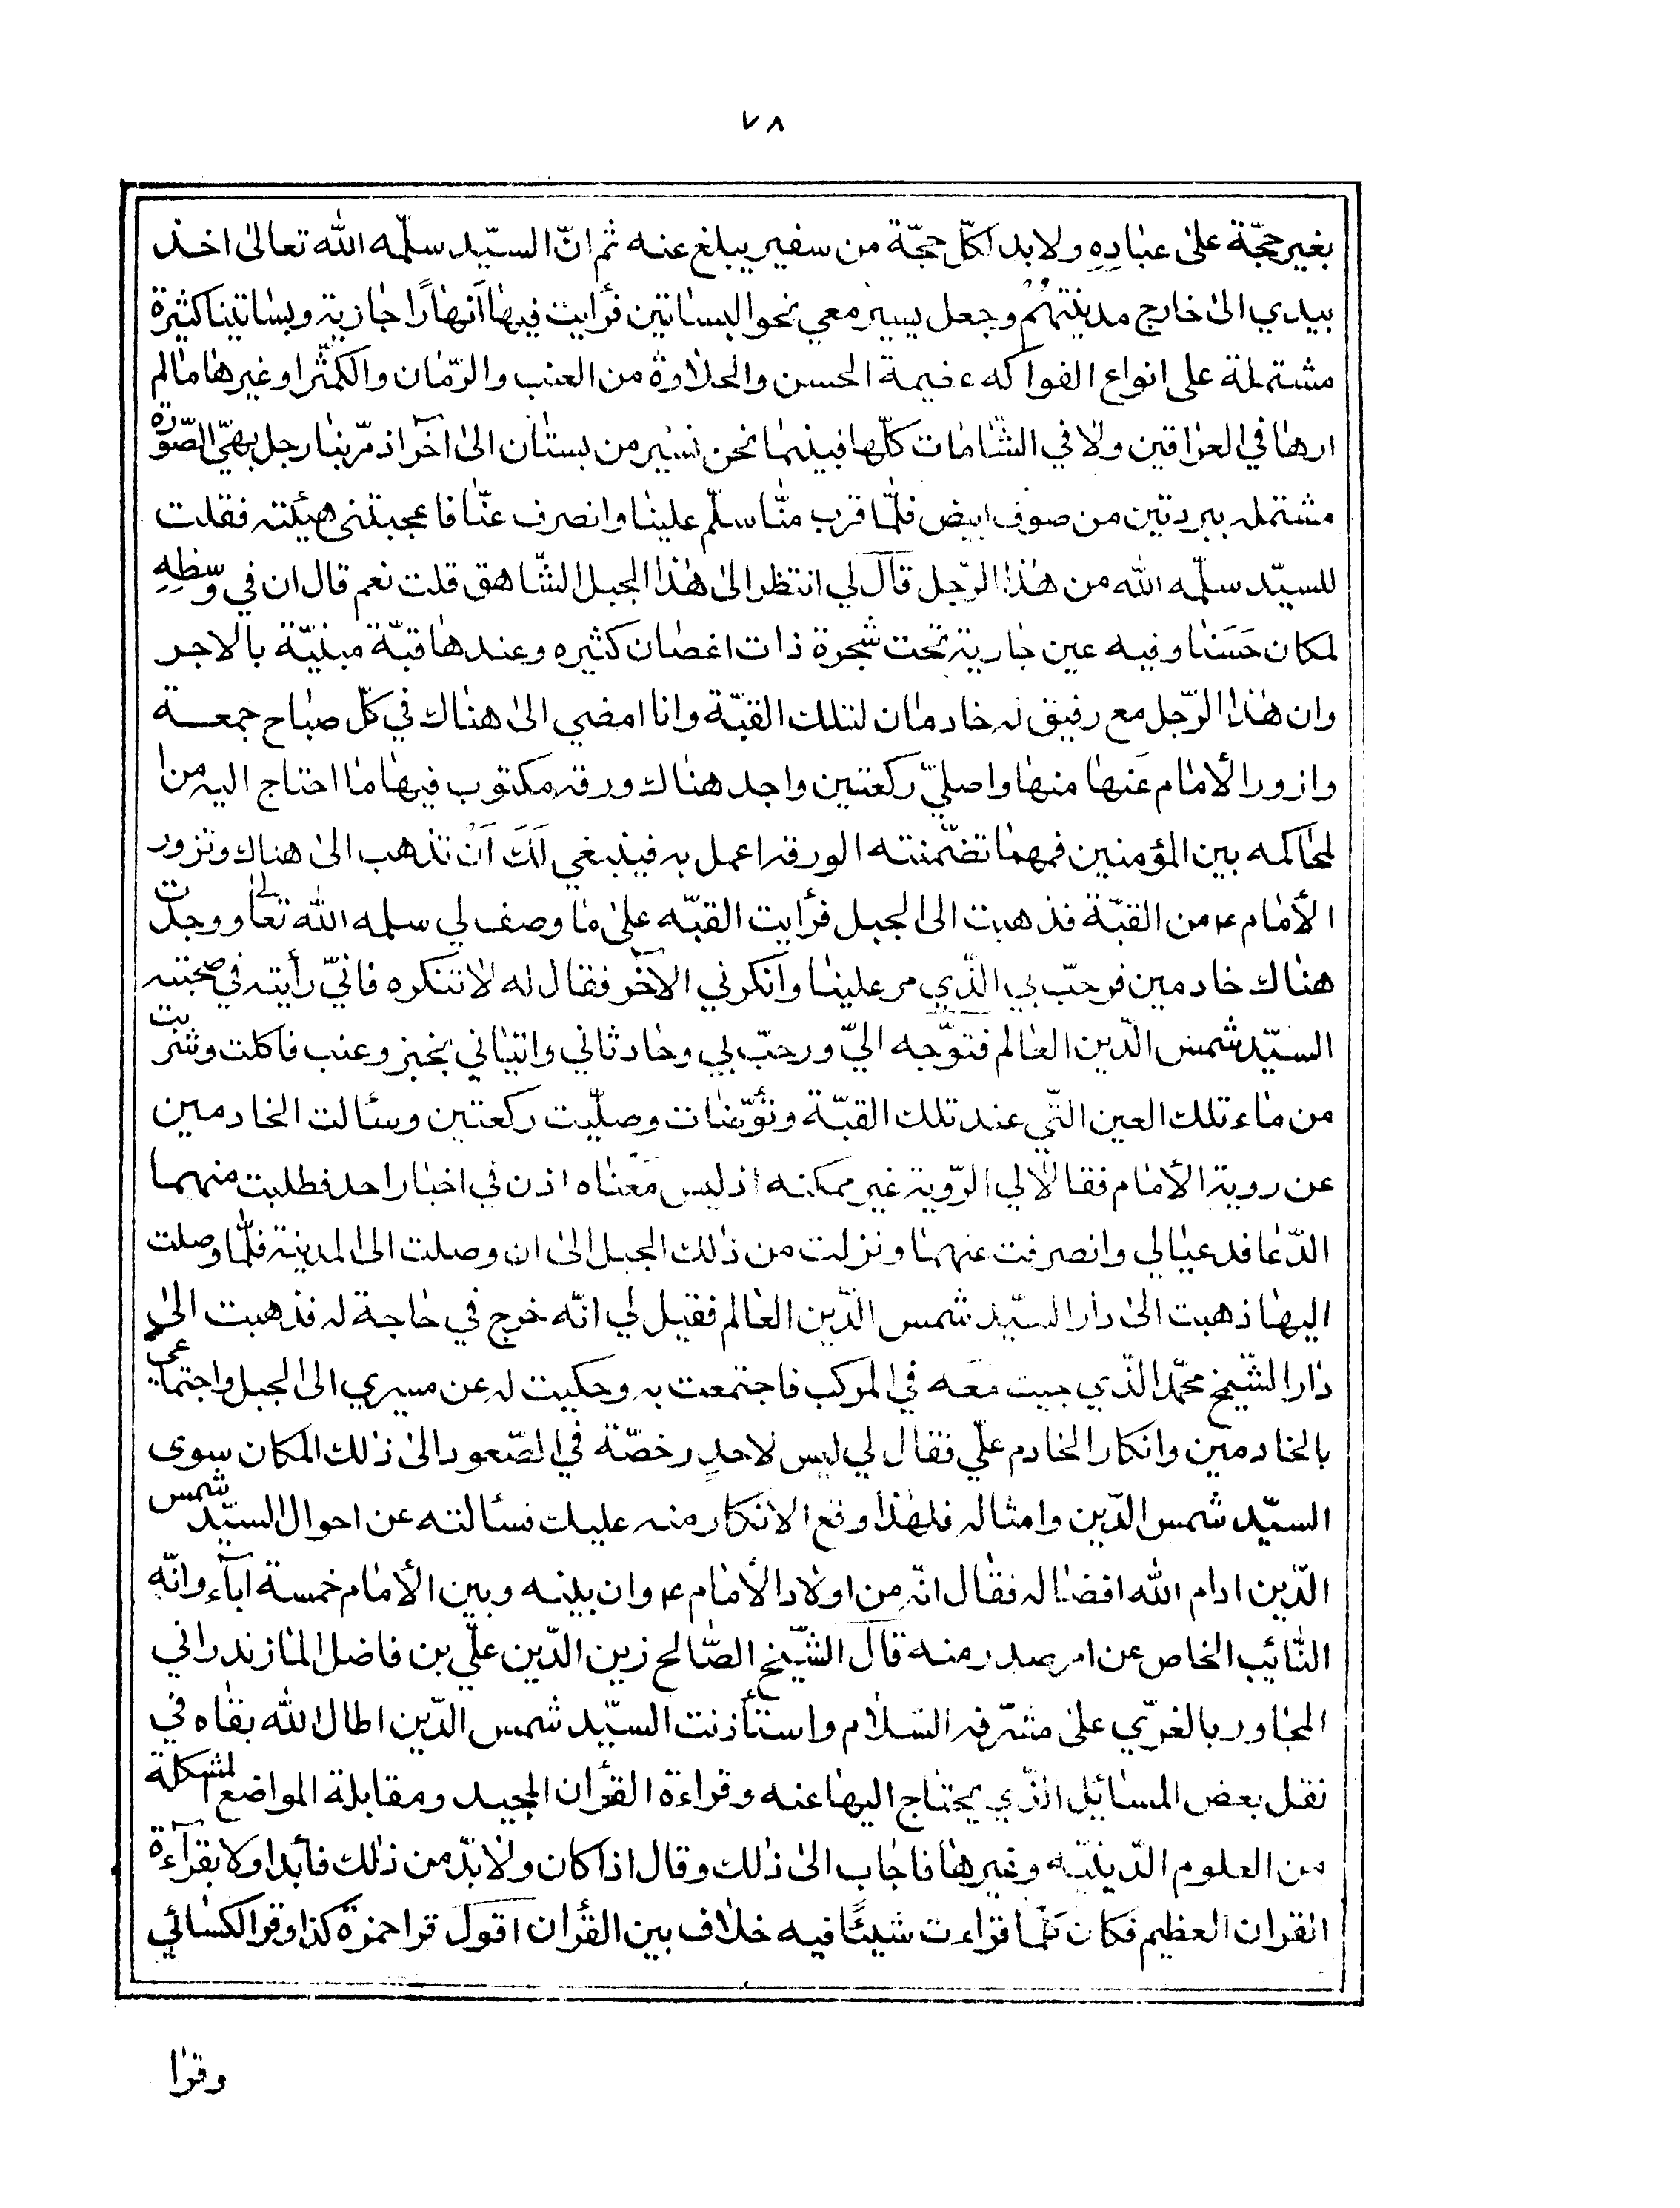 ٧٨
بغير حجّة على عباده ولا بد لكلّ حجّة من سفير يبلغ عنه ثم انّ السيّد سلّمه الله تعالى اخذ
بيدي الى خارج مدينتهم وجعل يسير معي نحو البساتين فرأيت فيها أنهارًا جارية وبساتينا كثيرة
مشتملة على انواع الفواكه عضيمة الحسن والحلاوة من العنب والرّمان والكمّثرا وغيرها ما لم
ارها في العراقين ولا في الشّامات كلّها فبينما نحن نسير من بستان الى آخر اذ مرّ بنا رجل بهيّ الصّورة
مشتمله ببردتين من صوف ابيض فلمّا قرب منّا سلّم علينا وانصرف عنّا فاعجبتنى هيئته فقلت
للسيّد سلّمه الله من هذا الرّجل قال لي انتظر الى هذا الجبل الشّاهق قلت نعم قال ان في وسّطهِ
لمكان حَسَنا وفيه عين جارية تحت شجرة ذات اغصان كثيره وعندها قبّة مبنيّة بالاجر
وان هذا الرّجل مع رفيق له خادمان لتلك القبّة وانا امضي الى هناك في كلّ صباح جمعة
وازور الأمام عَنها منها واصليّ ركعتين واجد هناك ورقه مكتوب فيها ما احتاج اليه من
لمحاكمه بين المؤمنين فمهما تضمّنته الورقه اعمل به فينبغي لَكَ اَنْ تذهب الى هناك وتزور
الأمام ع من القبّة فذهبت الى الجبل فرأيت القبّه على ما وصف لي سلمه الله تعالى ووجدت
هناك خادمين فرحّب بي الّذي مر علينا وانكرني الآخر فقال له لا تنكره فانيّ رأيته في صحبته
السيّد شمس الدّين العالم فتوّجه اليّ ورحّب بي وحادثاني واتياني بخبز وعنب فاكلت وشربت
من ماء تلك العين التّي عند تلك القبّة وتوّضات وصليّت ركعتين وسئالت الخادمين
عن روية الأمام فقالا لي الرّوية غير ممكنه اذ ليس مَعناه اذن في اخبار احد فطلبت منهما
الدّعا فدعيا لي وانصرفت عنهما ونزلت من ذلك الجبل الى ان وصلت الى المدينة فلمّا وصلت
اليها ذهبت الى دار السيّد شمس الدّين العالم فقيل لي انّه خرج في حاجة له فذهبت الى
دار الشّيخ محمّد الّذي جيت مَعَه في المركب فاجتمعت به وحكيت له عن مسيري الى الجبل واجتماعي
بالخادمين وانكار الخادم عليّ فقال لي ليس لاحدٍ رخصّة في الصّعود الى ذلك المكان سوى
السيّد شمس الدّين وامثاله فلهذا وقع الانكار منه عليك فسئالته عن احوال السيّد شمس
الدّين ادام الله افضاله فقال انّه من اولاد الأمام ع وان بينه وبين الأمام خمسة آبآء وانّه
النّائب الخاص عن امر صدر منه قال الشّيخ الصّالح زين الدّين عليّ بن فاضل المازندراني
المجاور بالغريّ على مشرّفه السّلام واستأذنت السيّد شمس الدّين اطال الله بقاه في
نقل بعض المسائل الّذي يحتاج اليها عنه وقراءة القرأن المجيد ومقابلة المواضع المشكلة
من العلوم الدّينيّه وغيرها فاجاب الى ذلك وقال اذا كان ولا بدّ من ذلك فأبدا ولا بقرآءة
القران العظيم فكان كلّما قراءت شيئًا فيه خلاف بين القرّان اقول قرا حمزة كذا وقرا الكسائي
وقرا